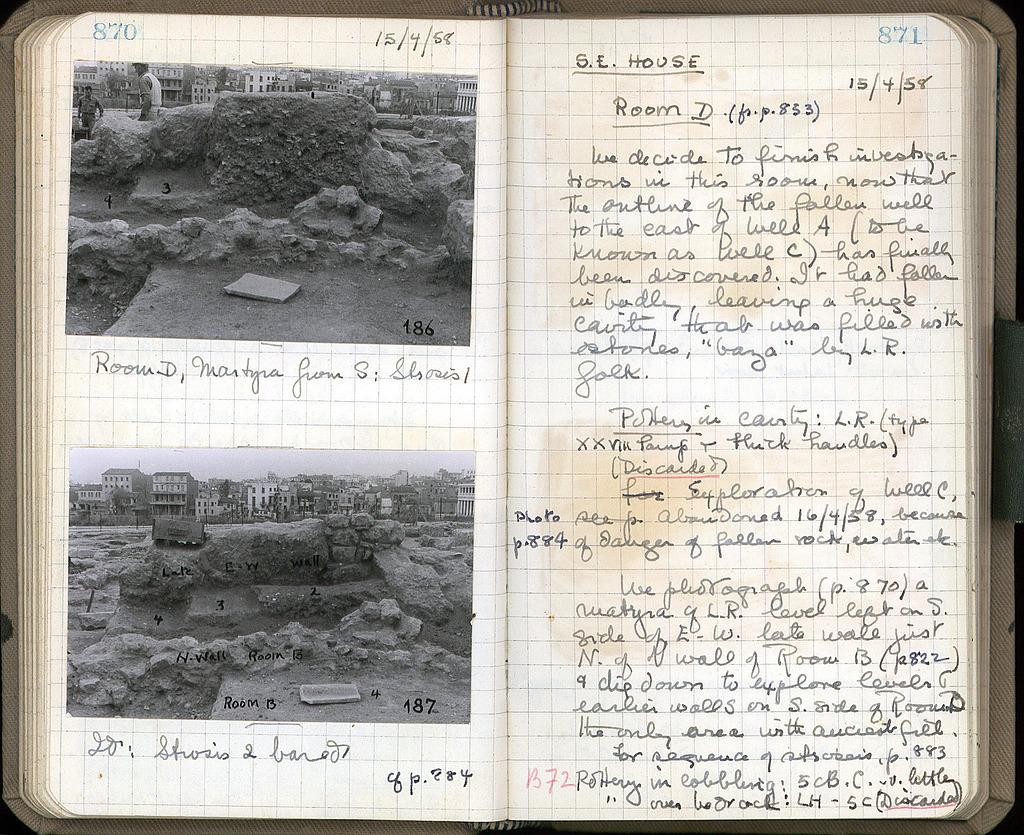 870
15/4/58
3
4
186
Room D, Martyra from S: Strosis 1
Late E-W wall
3 2
4
N-Wall Room B
Room B 4
187
Id: Strosis 2 bared
cf p. 884
871
S.E. HOUSE
15/4/58
Room D (fr. p. 853)
We decide to finish investiga-
tions in this room, now that
the outline of the fallen well
to the east of Well A (to be
known as Well C) has finally
been discovered. It had fallen
in badly, leaving a huge
cavity that was filled with
stones, "baza" by L.R.
folk.
Pottery in cavity: L.R. (type
XXVIII lamp - thick handles)
(Discarded)
for Exploration of Well C,
Photo see p. abandoned 16/4/58, because
p. 884 of danger of fallen rock, water etc.
We photograph (p. 870) a
martyra of L.R. level left on S.
side of E-W. late wall just
N. of N wall of Room B (p 822)
& dig down to explore levels &
earlier walls on S. side of Room D
the only area with ancient fill.
For sequence of strosis, p. 883
B72 Pottery in cobbling: 5c B.C. - v. little
" over bedrock: LH - 5c (Discarded)